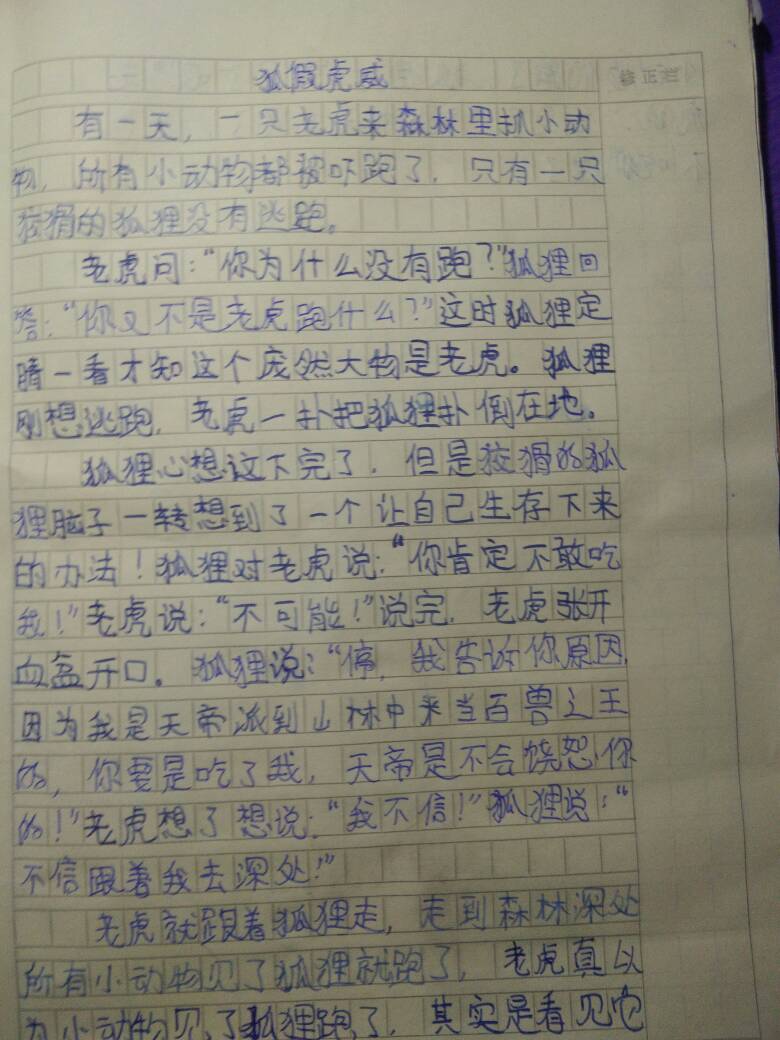 狐假虎威
修正栏
有一天，一只老虎来森林里抓小动
物，所有小动物都被吓跑了，只有一只
狡猾的狐狸没有逃跑。
老虎问：“你为什么没有跑？”狐狸回
答：“你又不是老虎跑什么？”这时狐狸定
睛一看才知这个庞然大物是老虎。狐狸
刚想逃跑，老虎一扑把狐狸扑倒在地。
狐狸心想这下完了，但是狡猾的狐
狸脑子一转想到了一个让自己生存下来
的办法！狐狸对老虎说：“你肯定不敢吃
我！”老虎说：“不可能！”说完，老虎张开
血盆开口。狐狸说：“停，我告诉你原因，
因为我是天帝派到山林中来当百兽之王
的，你要是吃了我，天帝是不会饶恕你
的！”老虎想了想说：“我不信！”狐狸说：“
不信跟着我去深处！”
老虎就跟着狐狸走，走到森林深处
所有小动物见了狐狸就跑了，老虎真以
为小动物见了狐狸跑了，其实是看见它